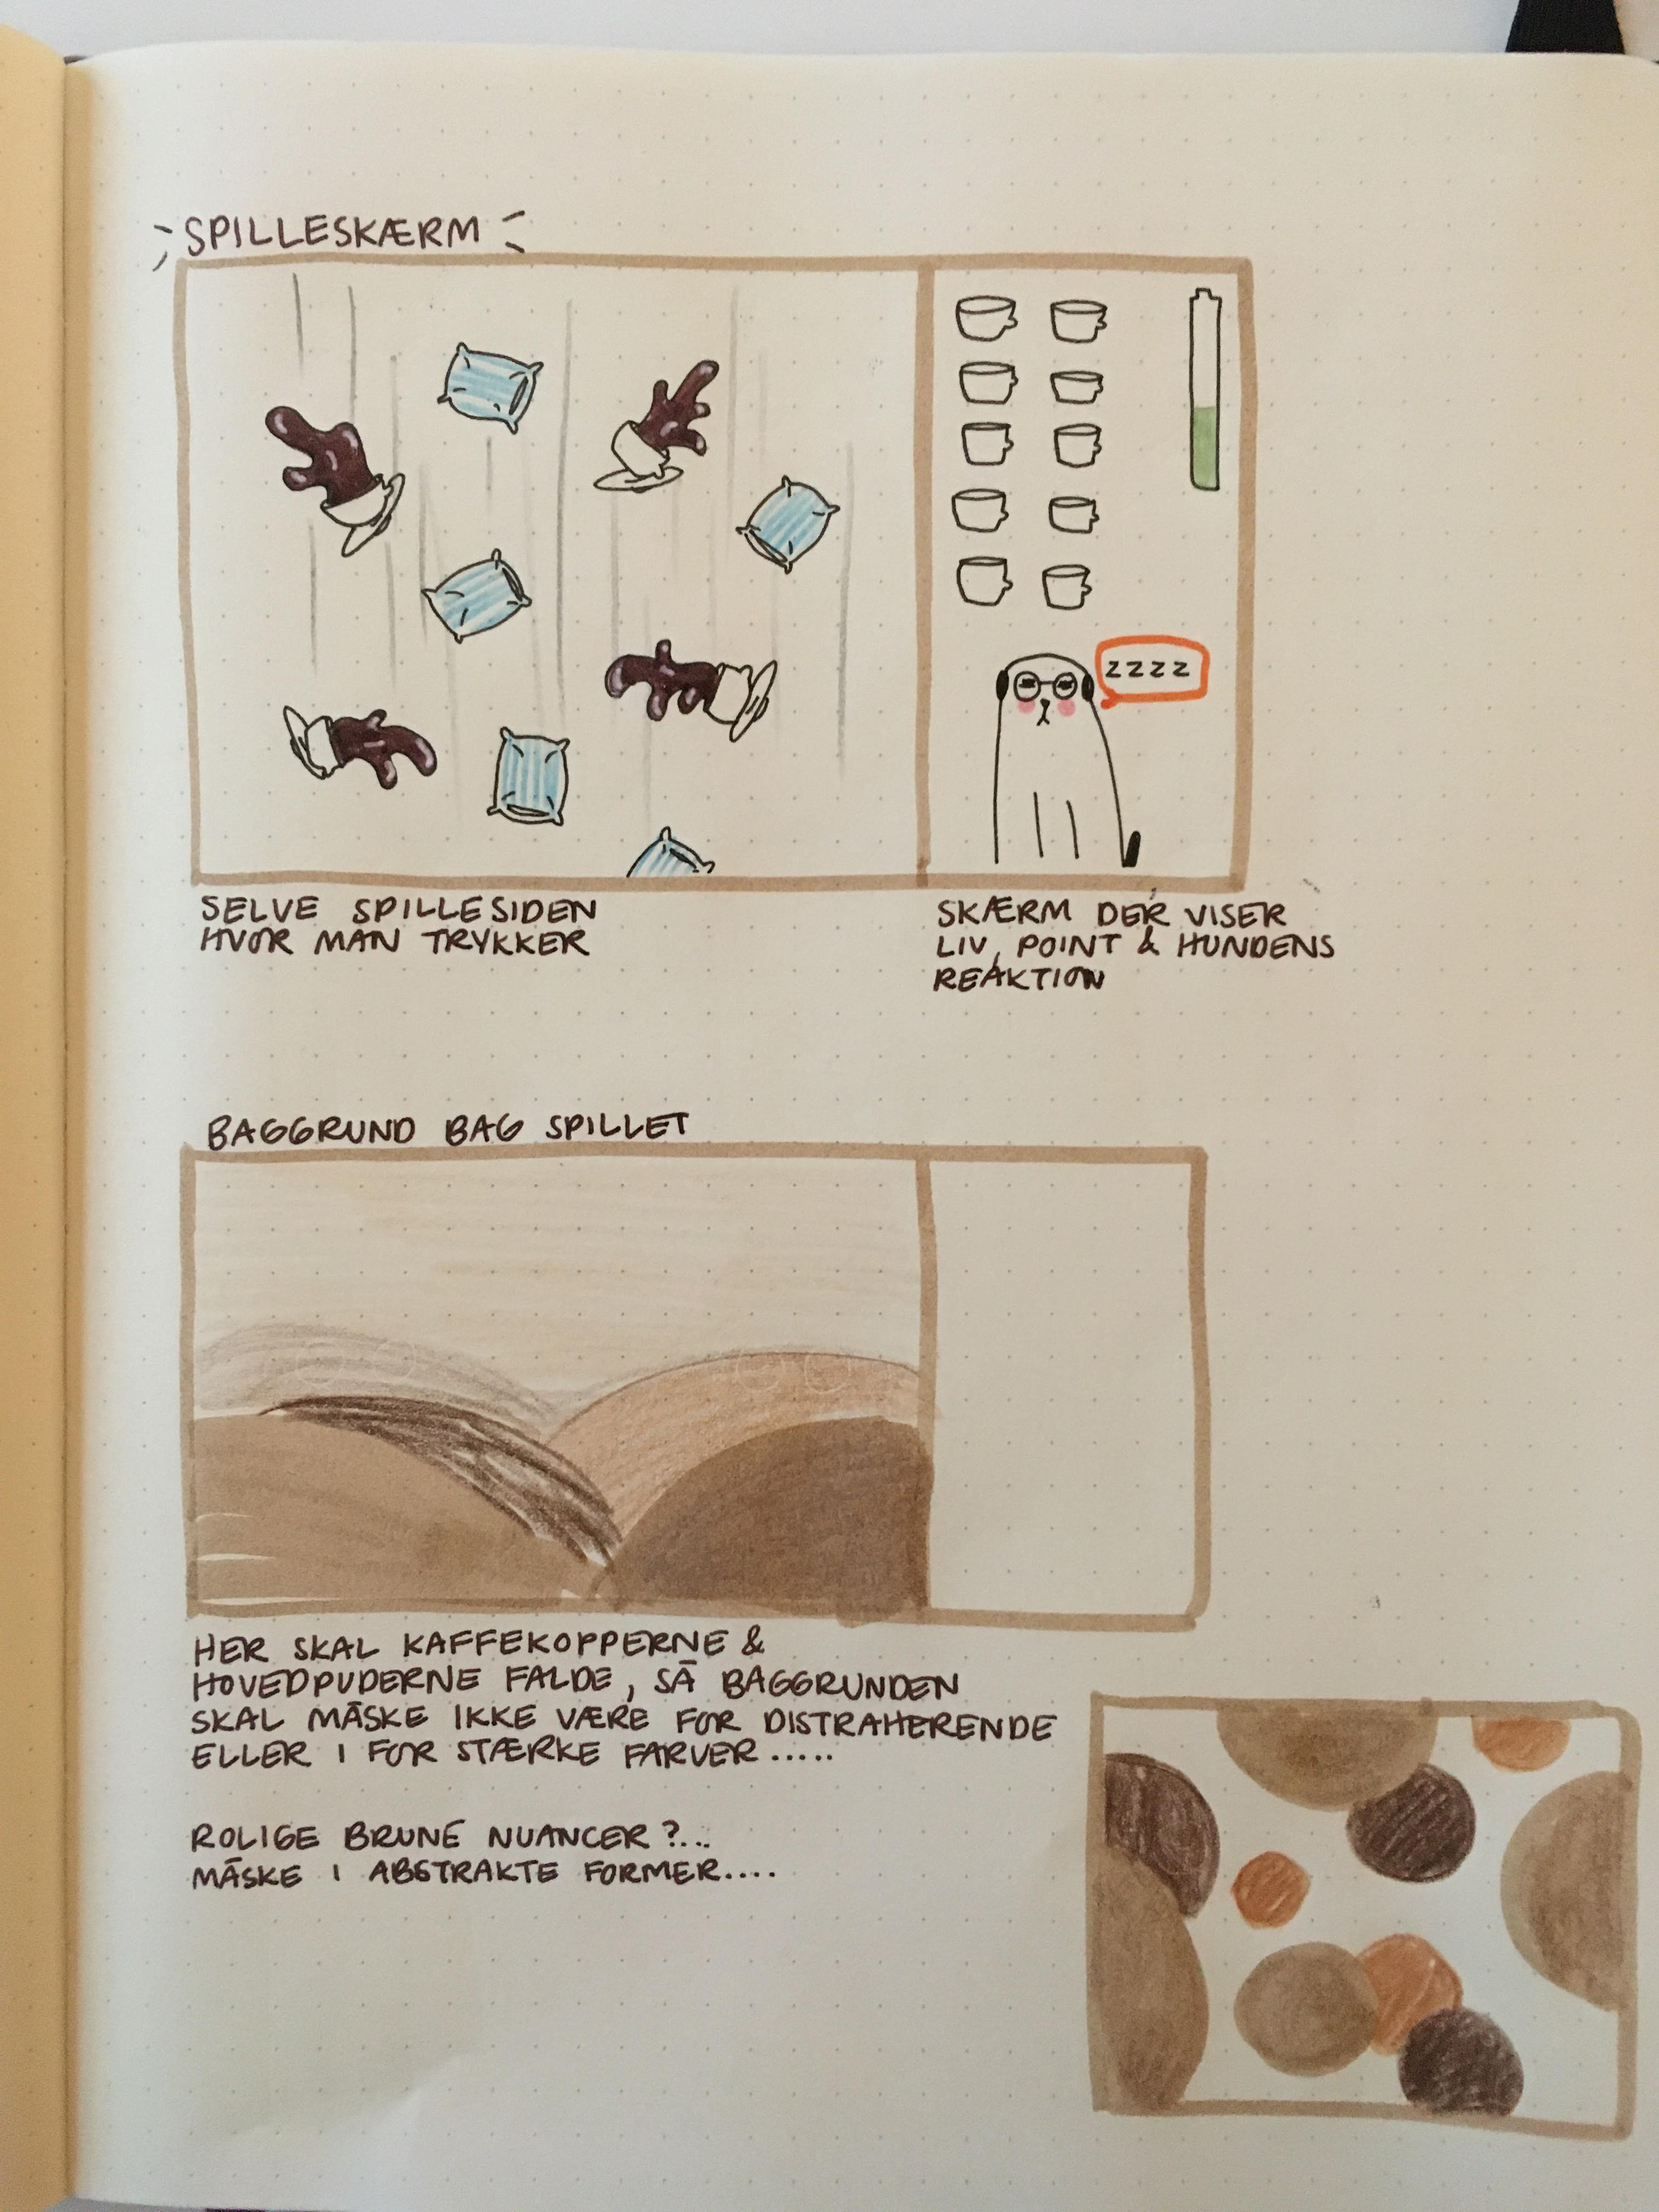 SPILLESKÆRM
ZZZZ
SELVE SPILLESIDEN
HVOR MAN TRYKKER
SKÆRM DER VISER
LIV, POINT & HUNDENS
REAKTION
BAGGRUND BAG SPILLET
HER SKAL KAFFEKOPPERNE &
HOVEDPUDERNE FALDE, SÅ BAGGRUNDEN
SKAL MÅSKE IKKE VÆRE FOR DISTRAHERENDE
ELLER I FOR STÆRKE FARVER.....
ROLIGE BRUNE NUANCER?...
MÅSKE I ABSTRAKTE FORMER....